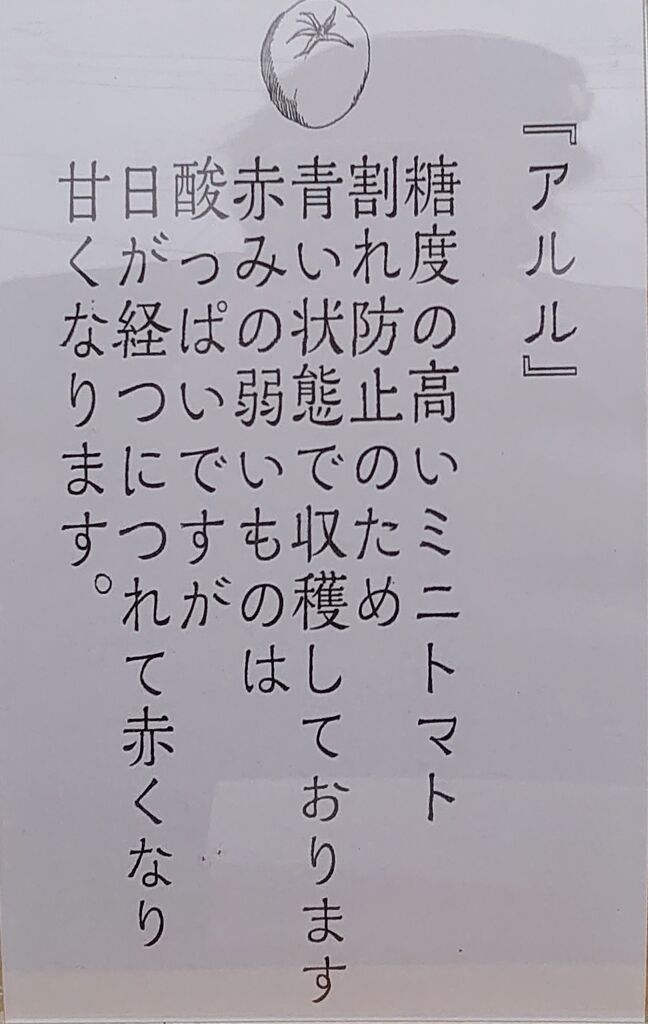 『アルル』
糖度の高いミニトマト
割れ防止のため
青い状態で収穫しております
赤みの弱いものは
酸っぱいですが
日が経つにつれて赤くなり
甘くなります。